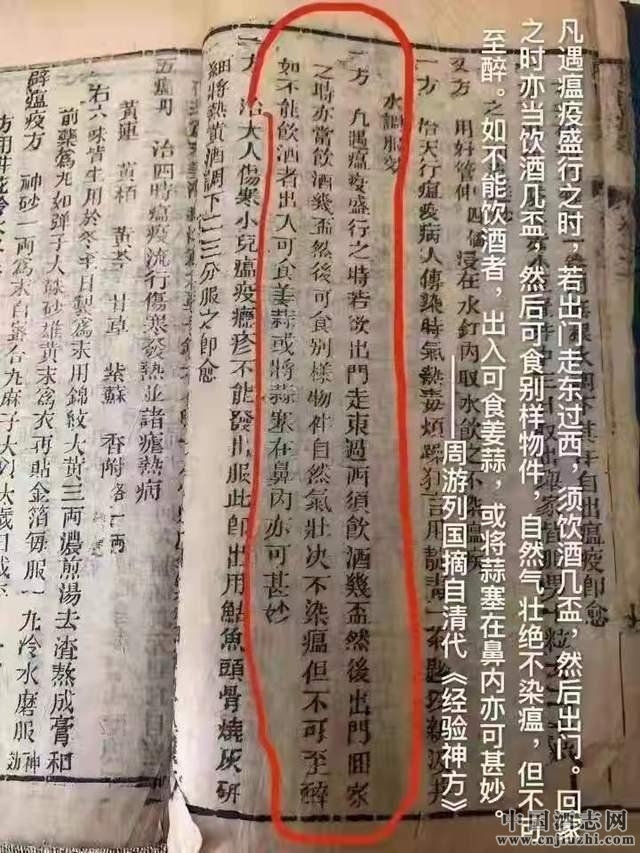 凡遇瘟疫盛行之时，若出门走东过西，须饮酒几盃，然后出门。回家
之时亦当饮酒几盃，然后可食别样物件，自然气壮绝不染瘟，但不可
至醉。如不能饮酒者，出入可食姜蒜，或将蒜塞在鼻内亦可甚妙。
——周游列国摘自清代《经验神方》
自出瘟疫即愈
又方 用好管仲四個浸在水缸内取水飲之不染瘟病
一方 治天行瘟疫病人傳染時氣熱毒煩躁狂言用靛青一茶匙
水調服效
一方 凡遇瘟疫盛行之時若欲出門走東過西須飲酒幾盃然後出門囬家
之時亦當飲酒幾盃然後可食别樣物件自然氣壯决不染瘟但不可至醉
如不能飲酒者出入可食姜蒜或將蒜塞在鼻内亦可甚妙
一方 治大人傷寒小兒瘟疫癧疹不能發出服此即出用鮎魚頭骨燒灰研
細將熱黄酒調下二三分服之即愈
五瘟丹 治四時瘟疫流行傷寒發熱並諸瘧熱病
黄連 黄栢 黄芩 甘草 紫蘇 香附各一兩
右六味皆生用於冬至日製爲末用錦紋大黄三兩濃煎湯去渣熬成膏和
前藥爲丸如弹子大硃砂雄黄末爲衣再貼金箔每服一丸冷水磨服神効
辟瘟疫方 神砂一兩爲末白蜜合丸麻子大
中国酒志网
www.cnjiuzhi.com